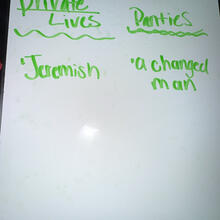 Private
Lives
Parties
'Jeremish
'a changed
man